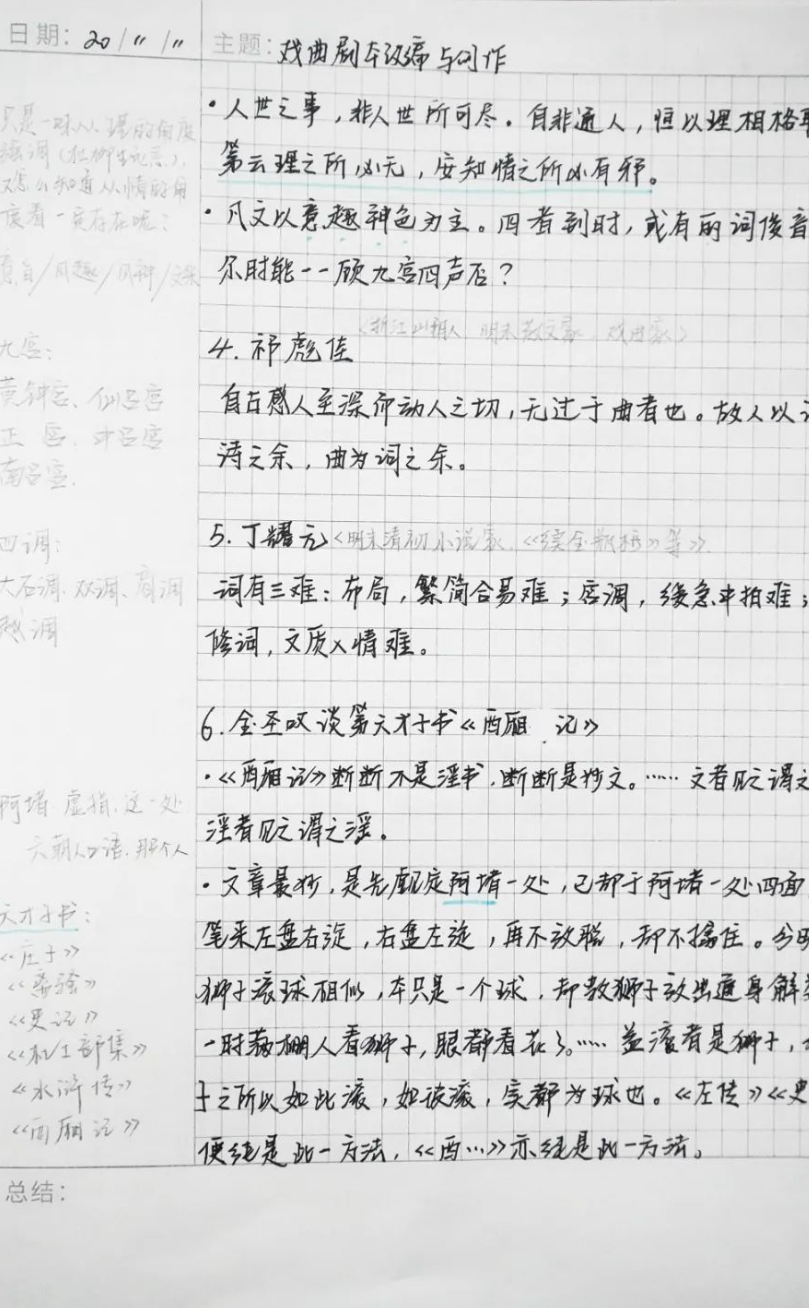 日期: 20/11/11
主题: 戏曲剧本改编与创作
只是一味从理的角度
强调(杜柳生死恋),
又怎么知道从情的角
度看一定存在呢?
意旨/风趣/风神/文采
九宫:
黄钟宫、仙吕宫
正宫、中吕宫
南吕宫.
四调:
大石调.双调、商调
越调
阿堵 虚指,这一处
六朝人口语.那个人
六才子书:
《庄子》
《离骚》
《史记》
《杜工部集》
《水浒传》
《西厢记》
·人世之事,非人世所可尽。自非通人,恒以理相格耳
第云理之所必无,安知情之所必有邪。
·凡文以意趣神色为主。四者到时,或有丽词俊音
尔时能一一顾九宫四声否?
4.祁彪佳
<浙江山阴人 明末散文家、戏曲家>
自古感人至深而动人之切,无过于曲者也。故人以词
诗之余,曲为词之余。
5.丁耀亢<明末清初小说家.《续金瓶梅》等>
词有三难:布局,繁简合易难;宫调,缓急中拍难;
修词,文质入情难。
6.金圣叹谈第六才子书《西厢.记》
·《西厢记》断断不是淫书,断断是妙文。……文者见之谓之
淫者见之谓之淫。
·文章最妙,是先觑定阿堵一处,已却于阿堵一处四面
笔来左盘右旋,右盘左旋,再不放脱,却不擒住。分明
狮子滚球相似,本只是一个球,却教狮子放出通身解数
一时满棚人看狮子,眼都看花了。……盖滚者是狮子,
子之所以如此滚,如彼滚,实都为球也。《左传》《史
便纯是此一方法,《西…》亦纯是此一方法。
总结: